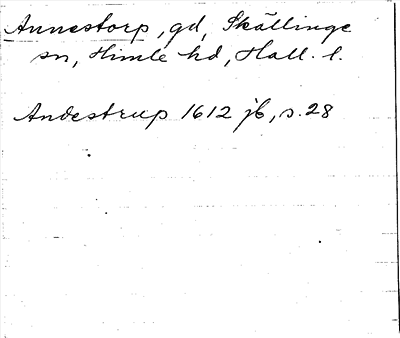 Annestorp, gd, Skällinge
sn, Himle hd, Hall. l.
Andestrup 1612 jb, s. 28